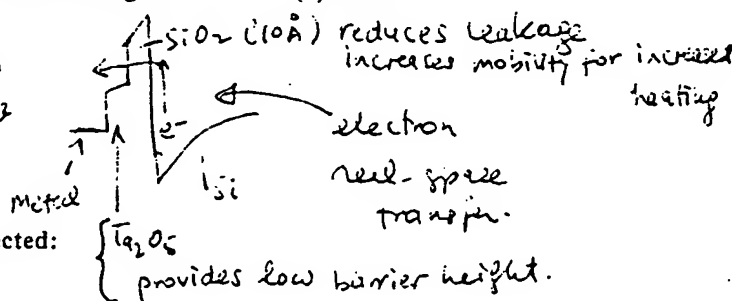 SiO2 (10Å) reduces leakage
increases mobility for increased
heating
e-
electron
real-space
transfer.
Si
Metal
cted:
Ta2O5
provides low barrier height.